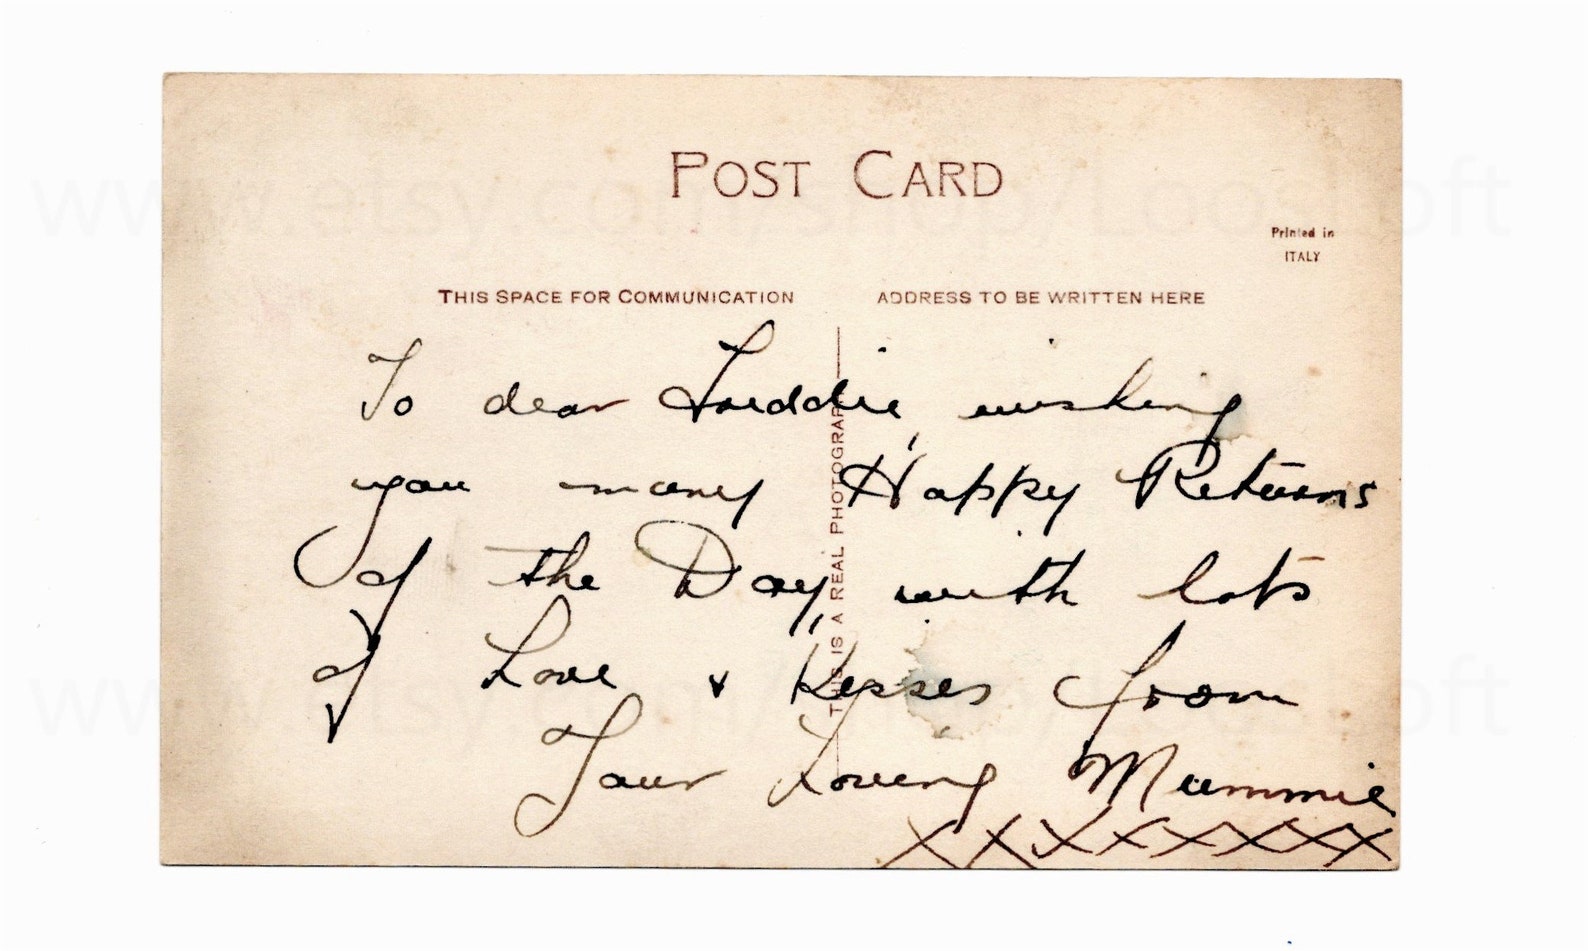 www.etsy.com/shop/LoosLoft
POST CARD
Printed in
ITALY
THIS SPACE FOR COMMUNICATION
ADDRESS TO BE WRITTEN HERE
To dear wishing
you many Happy Returns
of the Day, with lots
of Love & Kisses from
Your Loving Mummie
XXXXXXXX
THIS IS A REAL PHOTOGRAPH
www.etsy.com/shop/LoosLoft